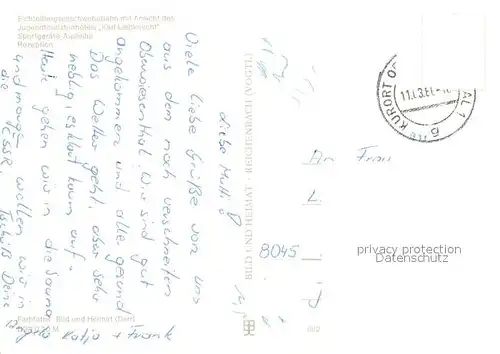 Fichtelbergschwebebahn mit Ansicht des
Jugendtouristenhotels „Karl Liebknecht“
Sportgeräte-Ausleihe
Rezeption
Liebe Mutti!
Viele liebe Grüße von uns
aus dem noch verschneiten
Oberwiesenthal. Wir sind gut
angekommen und alle gesund
Das Wetter geht, aber sehr
neblig, es klart kaum auf.
Heute gehen wir in die Sauna
und morgen wollen wir in
die ČSSR.
Tschüß Deine
Katja + Frank
BILD UND HEIMAT · REICHENBACH (VOGTL)
KURORT
An Frau
L.
8045
P
privacy protection
Datenschutz
Farbfotos: Bild und Heimat